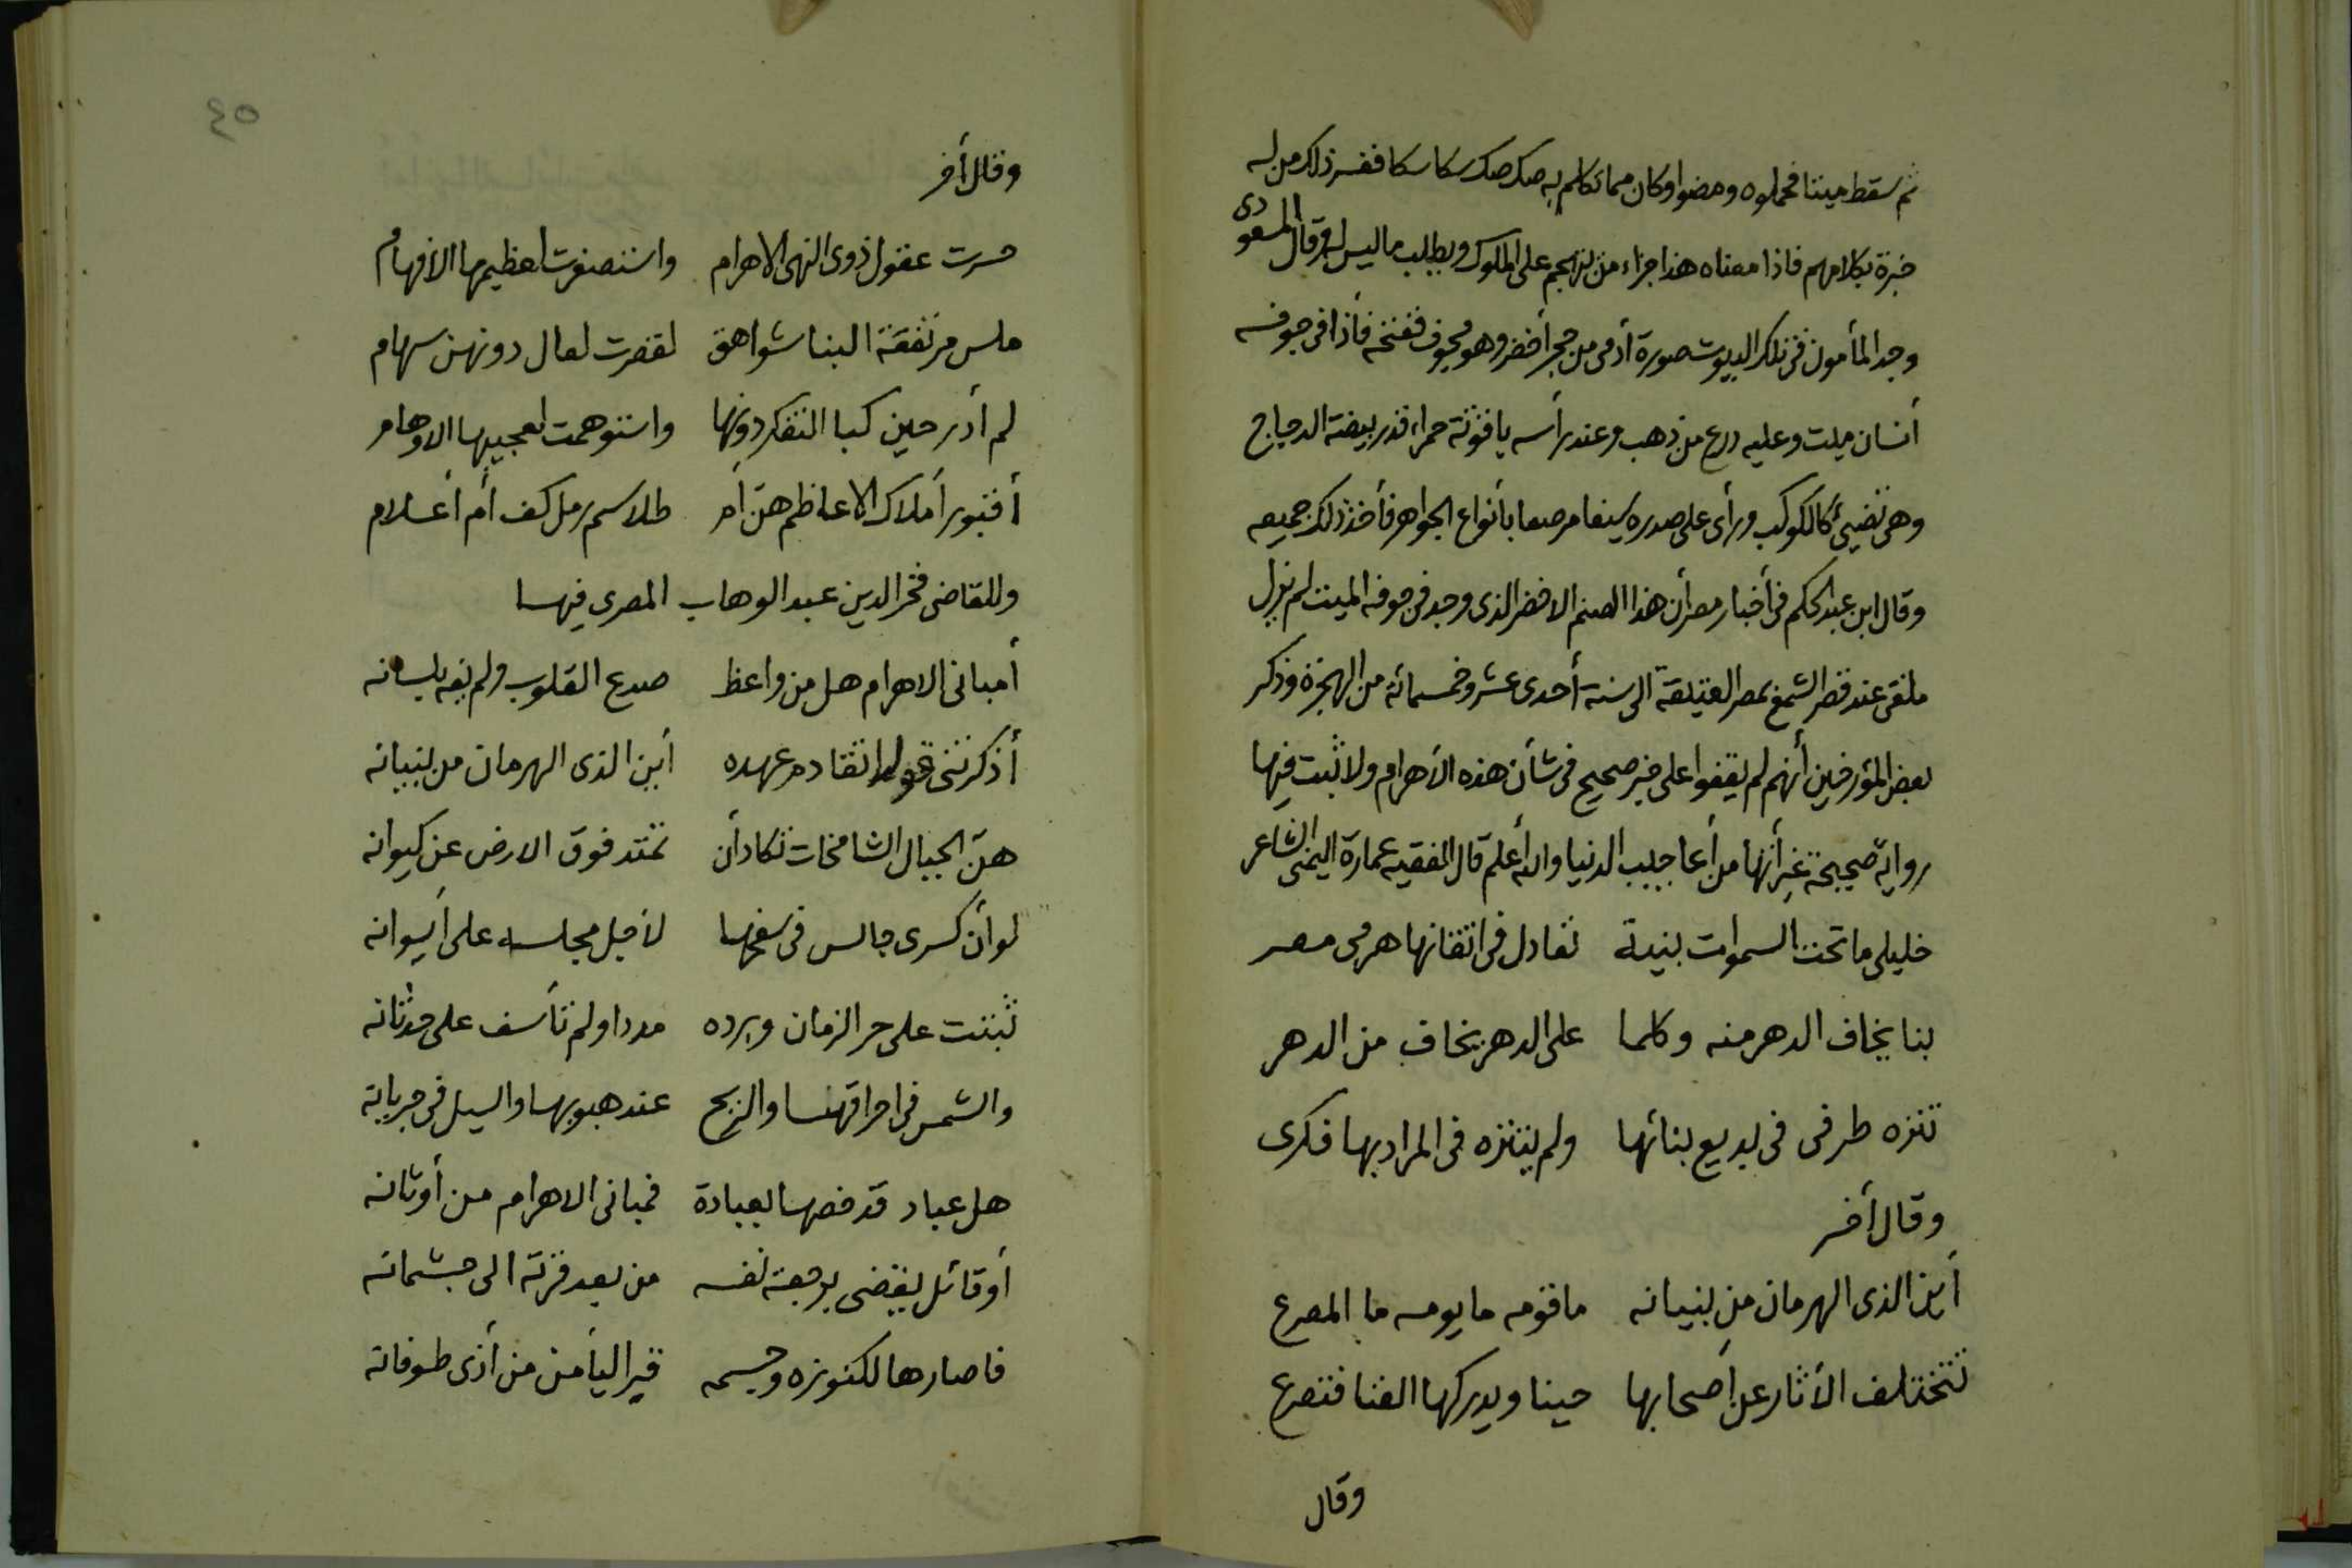 ثم سقط ميتا فحملوه ومضوا وكان مما تكلم به صك صك سكا سكا ففسر ذلك من له
خبرة بكلامهم فاذا معناه هذا جزاء من تهجم على الملوك ويطلب ما ليس له وقال المسعودى
وجد المأمون فى تلك البيوت صورة أدمى من حجر أخضر وهو مجوف ففتحه فأذا فى جوفه
أنسان ميت وعليه درع من ذهب وعند رأسه ياقوتة حمراء قدر بيضة الدجاج
وهى تضيئ كالكوكب ورأى على صدره سيفا مرصعا بأنواع الجواهر فأخذ ذلك جميعه
وقال ابن عبد الحكم فى أخبار مصر أن هذا الصنم الاخضر الذى وجد فى جوفه الميت لم يزل
ملقى عند قصر الشمع بمصر العتيقة الى سنة أحدى عشر وخمسمائة من الهجرة وذكر
بعض المؤرخين أنهم لم يقفوا على خبر صحيح فى شأن هذه الأهرام ولا ثبت فيها
رواية صحيحة غير أنها من أعاجيب الدنيا والله أعلم قال الفقيه عمارة اليمنى الشاعر
خليلى ما تحت السموات بنية تعادل فى اتقانها هرمى مصر
بنا يخاف الدهر منه وكلما على الدهر يخاف من الدهر
تنزه طرفى فى بديع بنائها ولم يتنزه فى المراد بها فكرى
وقال أخر
أين الذى الهرمان من بنيانه ما قومه ما يومه ما المصرع
تتختلف الأثار عن أصحابها حينا ويدركها الفنا فتصرع
وقال
٤٥
وقال أخر
حسرت عقول ذوى النهى الاهرام واستصغرت لعظيمها الافهام
ملس مرتفقة البنا شواهق لقصرت لعال دونهن سهام
لم أدر حين كبا التفكر دونها واستوهمت لعجيبها الاوهام
أقبور أملاك الاعاظم هن أم طلاسم رمل كف أم أعلام
وللقاضى فخر الدين عبد الوهاب المصرى فيها
أمبانى الاهرام هل من واعظ صدع القلوب ولم يفه بلسانه
أذكرتنى قولا تقادم عهده أين الذى الهرمان من بنيانه
هن الجبال الشامخات تكاد أن تمتد فوق الارض عن كيوانه
لو أن كسرى جالس فى سفحها لأجل مجلسه على أيوانه
ثبتت على حر الزمان وبرده مددا ولم تأسف على حدثانه
والشمس فى احراقها والريح عند هبوبها والسيل فى جريانه
هل عباد قد خصها بعبادة فمبانى الاهرام من أوثانه
أو قائل يقضى برجعة نفسه من بعد فرقته الى جثمانه
فاصارها لكنوزه وجسمه قبرا ليأمن من أذى طوفانه